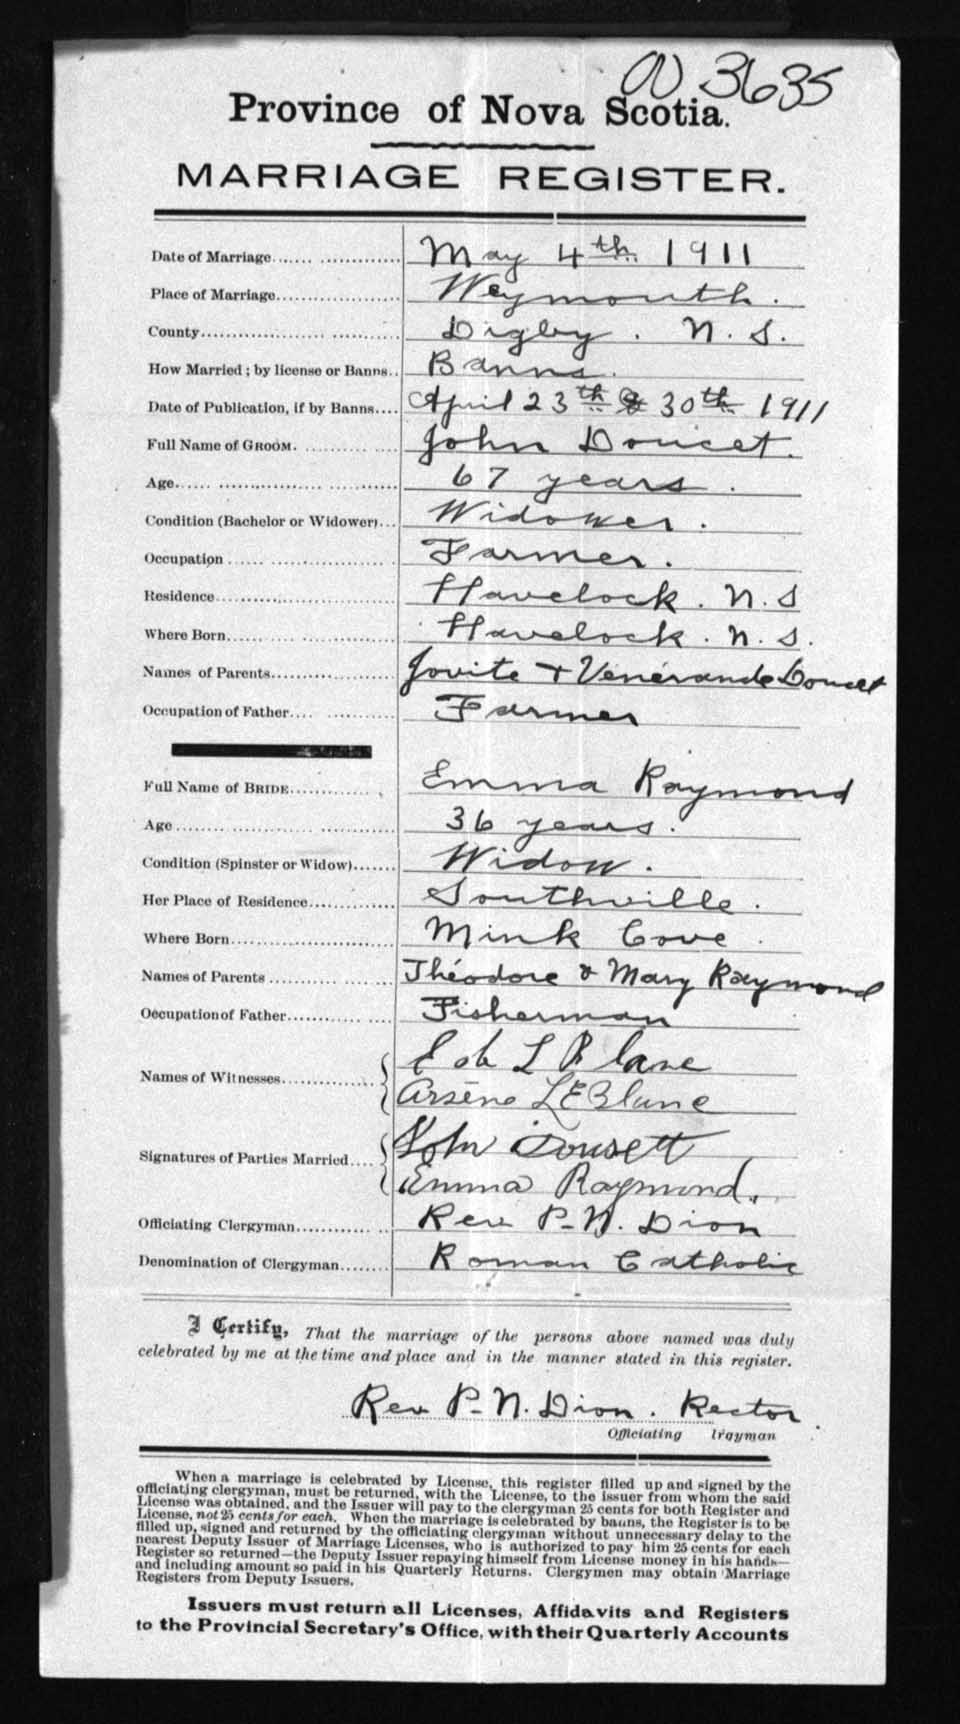 3635
Province of Nova Scotia.
MARRIAGE REGISTER.
Date of Marriage.... May 4th 1911
Place of Marriage.... Weymouth.
County.... Digby. N. S.
How Married; by license or Banns.. Banns.
Date of Publication, if by Banns.... April 23th & 30th 1911
Full Name of GROOM. John Doucet.
Age.... 67 years.
Condition (Bachelor or Widower)... Widower.
Occupation.... Farmer.
Residence.... Havelock. N. S
Where Born.... Havelock. N. S.
Names of Parents.... Jovite + Vénérande Doucet
Occupation of Father.... Farmer
Full Name of BRIDE.... Emma Raymond
Age.... 36 years.
Condition (Spinster or Widow).... Widow.
Her Place of Residence.... Southville.
Where Born.... Mink Cove.
Names of Parents.... Théodore & Mary Raymond
Occupation of Father.... Fisherman
Names of Witnesses.... L Blane
Arsène LEBlanc
Signatures of Parties Married.... John Dousett
Emma Raymond.
Officiating Clergyman.... Rev P-N. Dion
Denomination of Clergyman.... Roman Catholic
I Certify, That the marriage of the persons above named was duly
celebrated by me at the time and place and in the manner stated in this register.
Rev P-N. Dion. Rector.
Officiating lrgyman
When a marriage is celebrated by License, this register filled up and signed by the
officiating clergyman, must be returned, with the License, to the issuer from whom the said
License was obtained, and the Issuer will pay to the clergyman 25 cents for both Register and
License, not 25 cents for each. When the marriage is celebrated by banns, the Register is to be
filled up, signed and returned by the officiating clergyman without unnecessary delay to the
nearest Deputy Issuer of Marriage Licenses, who is authorized to pay him 25 cents for each
Register so returned—the Deputy Issuer repaying himself from License money in his hands—
and including amount so paid in his Quarterly Returns. Clergymen may obtain Marriage
Registers from Deputy Issuers.
Issuers must return all Licenses, Affidavits and Registers
to the Provincial Secretary's Office, with their Quarterly Accounts